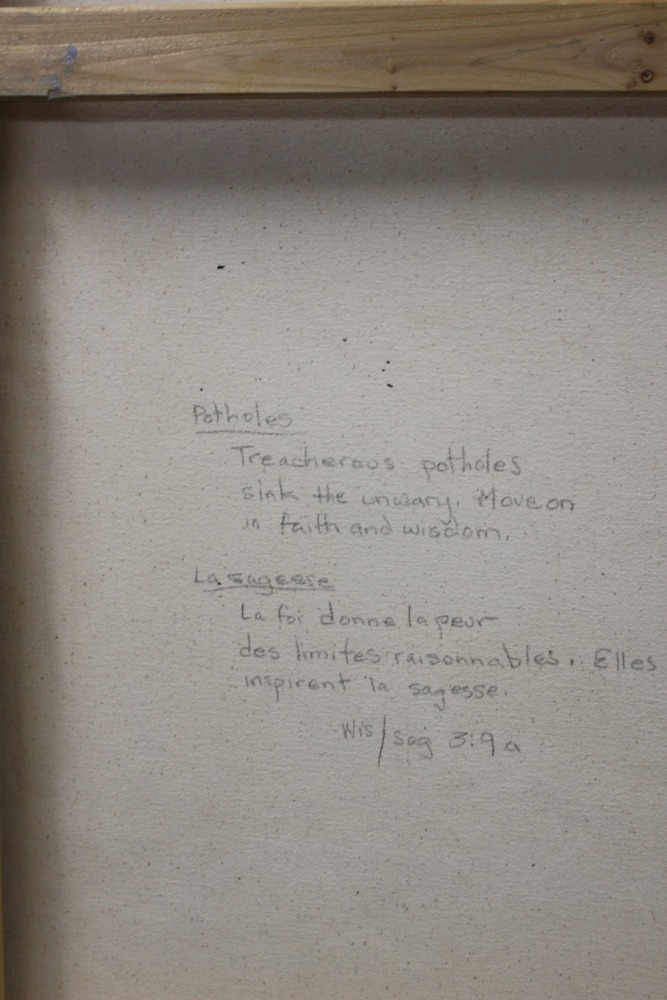 Potholes
Treacherous potholes
sink the unwary. Move on
in faith and wisdom.
La sagesse
La foi donne la peur
des limites raisonnables. Elles
inspirent la sagesse.
Wis/Sag 3:9a